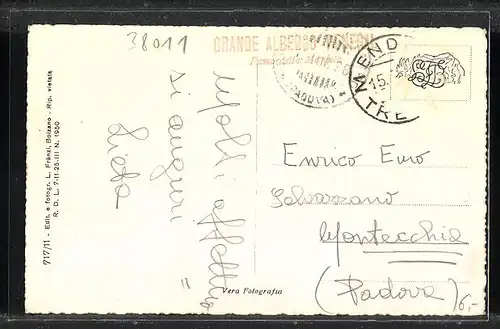 38011
GRANDE ALBERGO PENEGAL
Passo della Mendola
MENDOLA
15.
TRE
(PADOVA)
Molti affettuosi
auguri
Lieta
Enrico Euro
Selvazzano
Montecchia
(Padova)
6,-
717/11 - Edit. e fotogr. L. Fränzl, Bolzano - Rip. vietata
R. D. L. 7-11-25-III N. 1950
Vera Fotografia